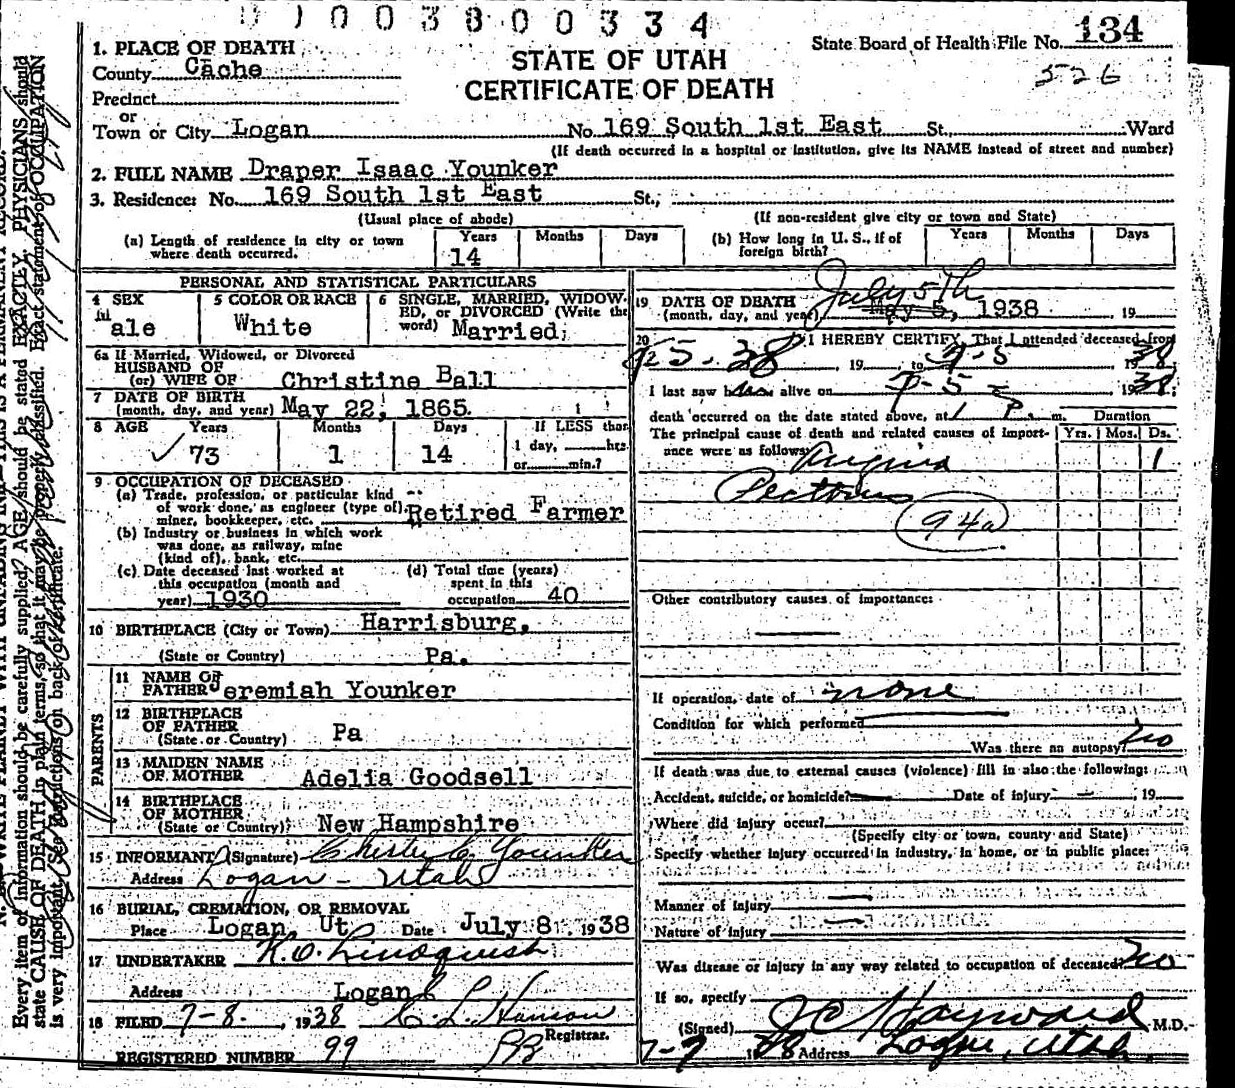 0 1 0 0 3 8 0 0 3 3 4
State Board of Health File No. 134
526
1. PLACE OF DEATH
STATE OF UTAH
CERTIFICATE OF DEATH
County Cache
Precinct
or
Town or City Logan No. 169 South 1st East St. Ward
(If death occurred in a hospital or institution, give its NAME instead of street and number)
2. FULL NAME Draper Isaac Younker
3. Residence: No. 169 South 1st East St.,
(Usual place of abode) (If non-resident give city or town and State)
(a) Length of residence in city or town where death occurred. Years 14 Months Days
(b) How long in U. S., if of foreign birth? Years Months Days
PERSONAL AND STATISTICAL PARTICULARS
4 SEX Male
5 COLOR OR RACE White
6 SINGLE, MARRIED, WIDOWED, or DIVORCED (Write the word) Married
6a If Married, Widowed, or Divorced
HUSBAND OF
(or) WIFE OF Christine Ball
7 DATE OF BIRTH
(month, day, and year) May 22, 1865
8 AGE Years 73 Months 1 Days 14
If LESS than
1 day, hrs.
or min.?
9 OCCUPATION OF DECEASED
(a) Trade, profession, or particular kind
of work done, as engineer (type of),
miner, bookkeeper, etc. Retired Farmer
(b) Industry or business in which work
was done, as railway, mine
(kind of), bank, etc.
(c) Date deceased last worked at
this occupation (month and
year) 1930
(d) Total time (years)
spent in this
occupation 40
10 BIRTHPLACE (City or Town) Harrisburg,
(State or Country) Pa.
PARENTS
11 NAME OF
FATHER Jeremiah Younker
12 BIRTHPLACE
OF FATHER
(State or Country) Pa
13 MAIDEN NAME
OF MOTHER Adelia Goodsell
14 BIRTHPLACE
OF MOTHER
(State or Country) New Hampshire
15 INFORMANT (Signature) Chester C Younker
Address Logan - Utah
16 BURIAL, CREMATION, OR REMOVAL
Place Logan, Ut Date July 8, 1938
17 UNDERTAKER K.O. Lindquist
Address Logan
18 FILED 7-8-, 1938
Registrar.
REGISTERED NUMBER 99
19 DATE OF DEATH July 5th
(month, day, and year) May 5, 1938 19
20 I HEREBY CERTIFY, That I attended deceased from
7-5-38, 19 to 7-5 1938
I last saw him alive on 7-5- 1938,
death occurred on the date stated above, at 1 P. m. Duration
The principal cause of death and related causes of importance were as follows: Yrs. Mos. Ds.
Angina 1
Pectoris
94a
Other contributory causes of importance:
If operation, date of none
Condition for which performed
Was there an autopsy? No
If death was due to external causes (violence) fill in also the following:
Accident, suicide, or homicide? Date of injury , 19
Where did injury occur?
(Specify city or town, county and State)
Specify whether injury occurred in industry, in home, or in public place:
Manner of injury
Nature of injury
Was disease or injury in any way related to occupation of deceased? No
If so, specify
(Signed) J C Hayward M.D.
7-7 1938 Address Logan, Utah.
Every item of information should be carefully supplied. AGE should be stated EXACTLY. PHYSICIANS should
state CAUSE OF DEATH in plain terms, so that it may be properly classified. Exact statement of OCCUPATION
is very important. See instructions on back of certificate.